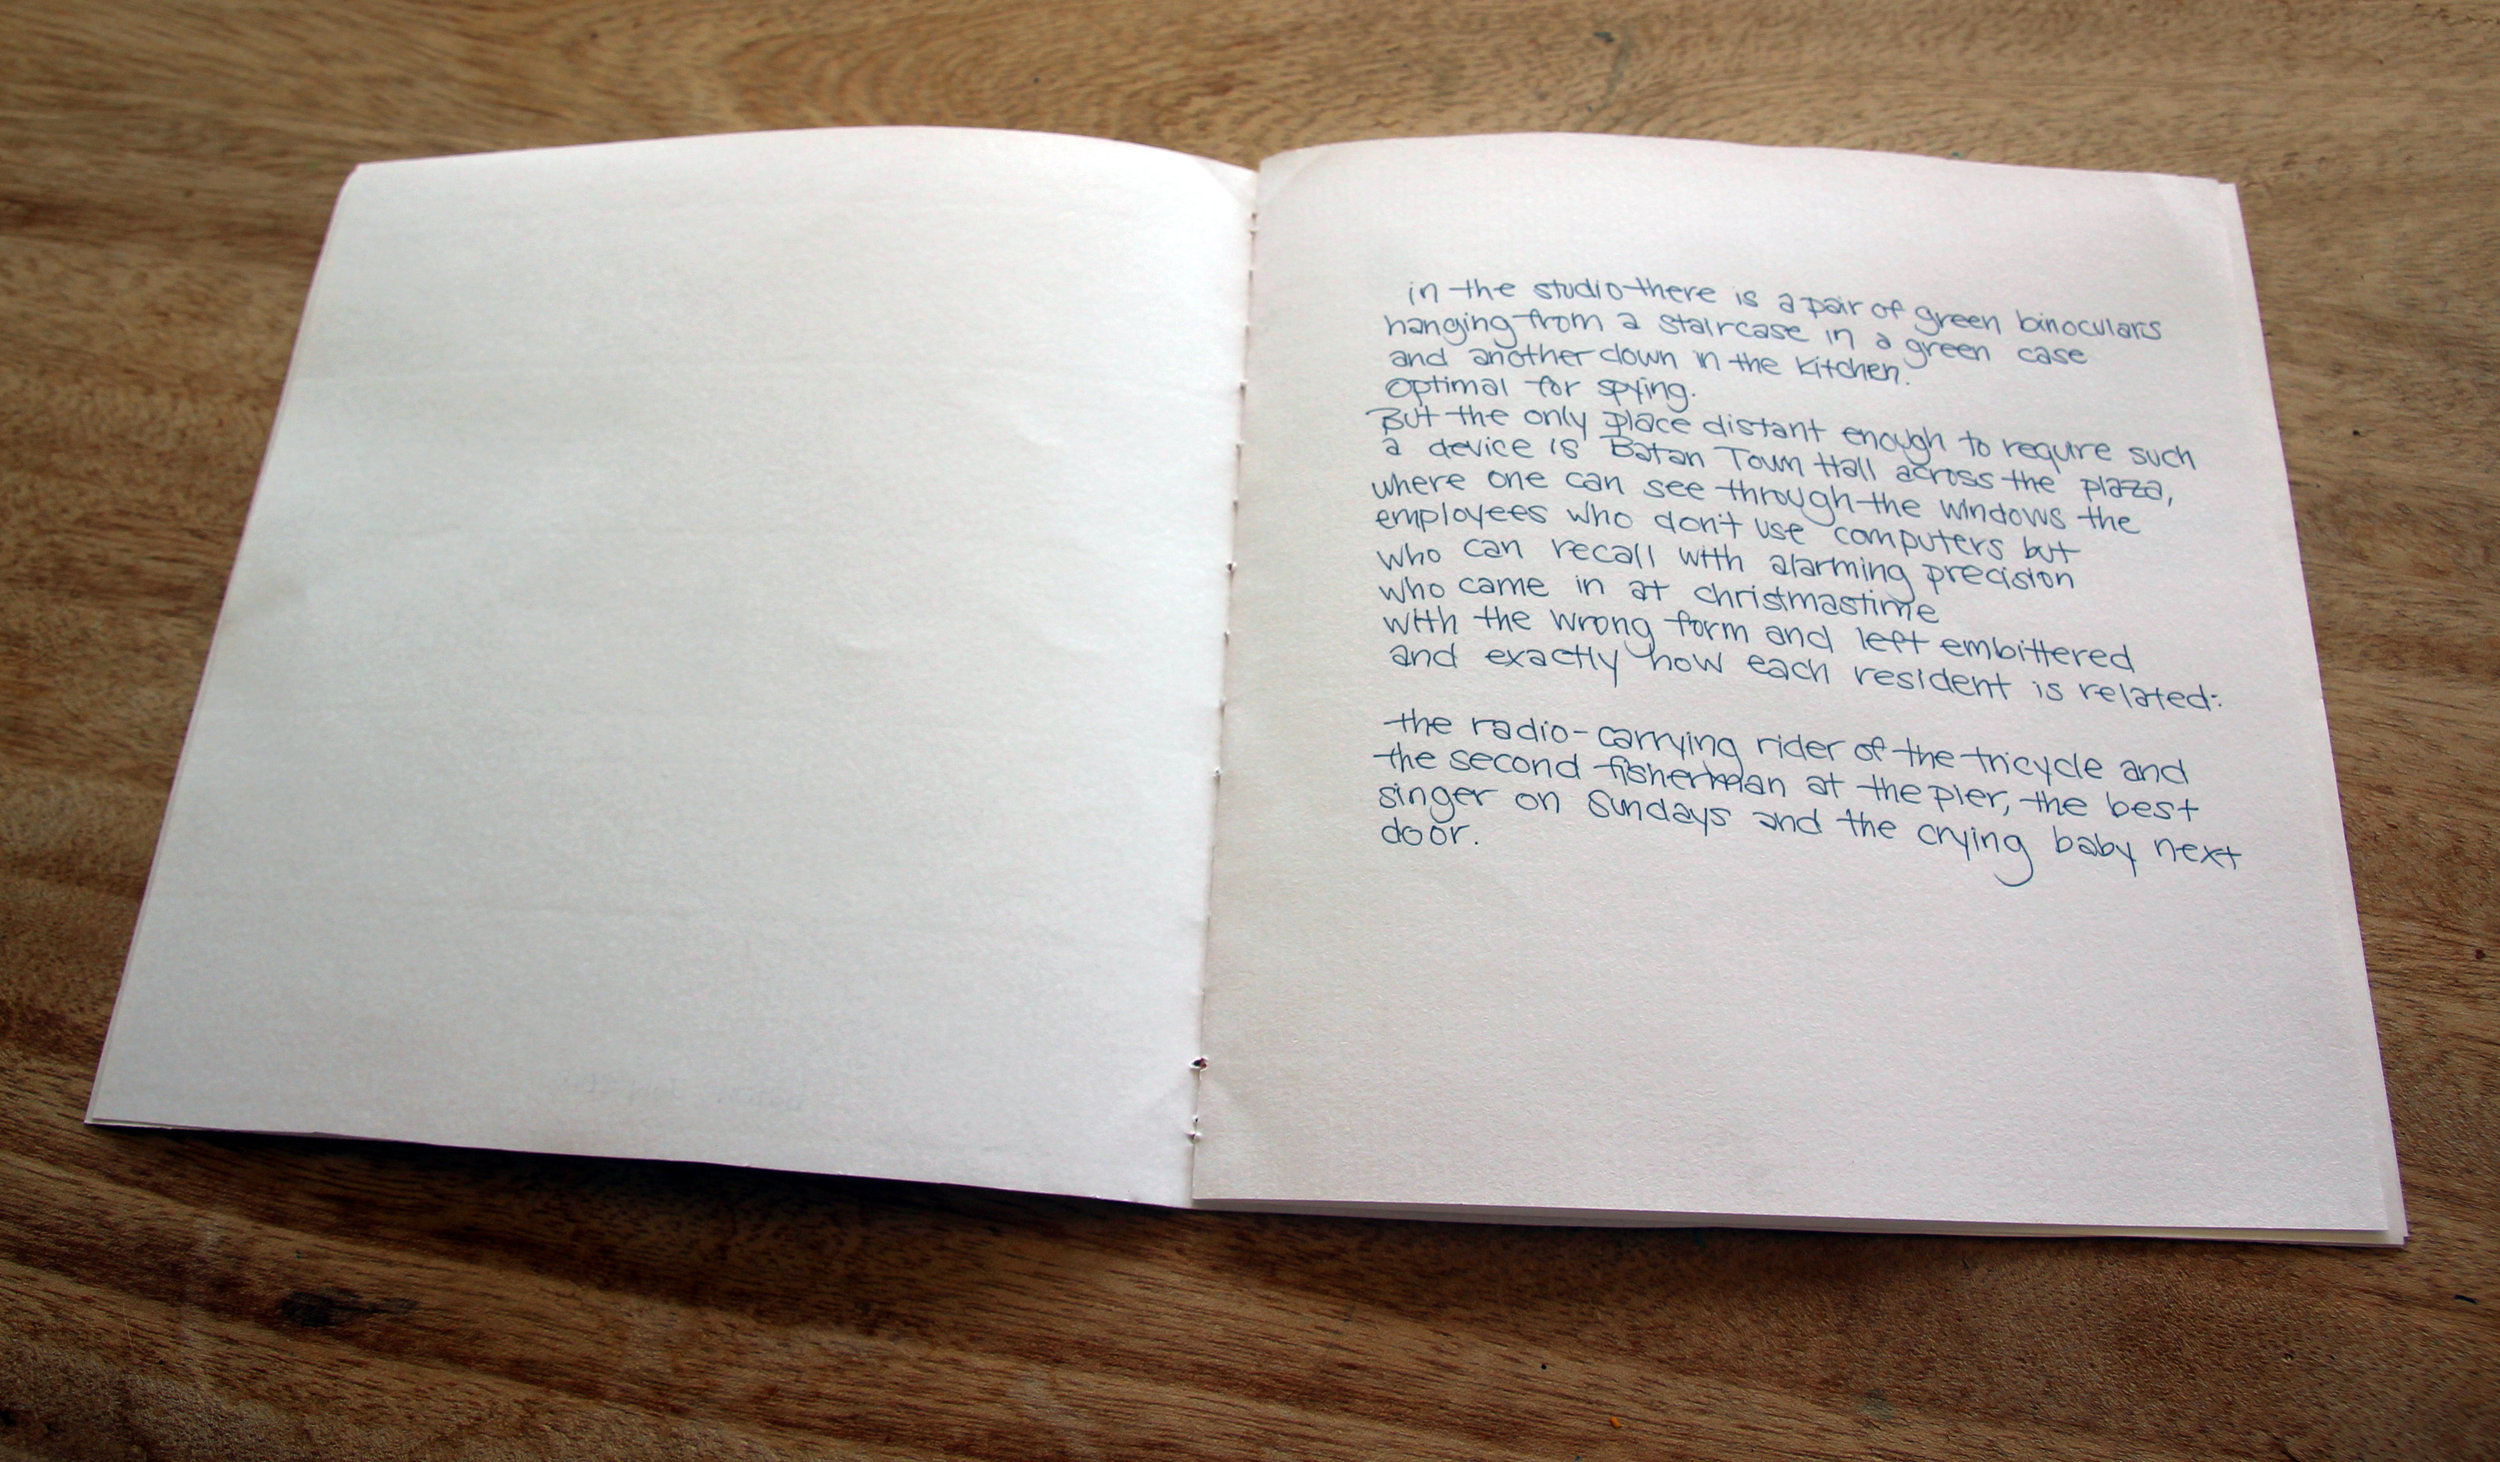 in the studio there is a pair of green binoculars
hanging from a staircase in a green case
and another down in the kitchen.
optimal for spying.
But the only place distant enough to require such
a device is Batan Town Hall across the plaza,
where one can see through the windows the
employees who don't use computers but
who can recall with alarming precision
who came in at christmastime
with the wrong form and left embittered
and exactly how each resident is related:
the radio-carrying rider of the tricycle and
the second fisherman at the pier, the best
singer on Sundays and the crying baby next
door.